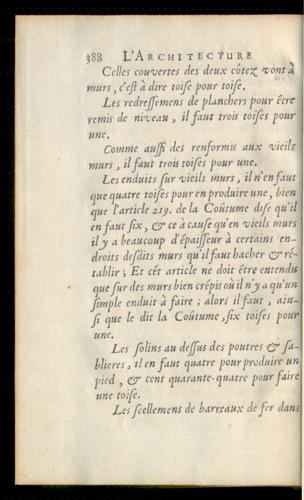 388 L'ARCHITECTURE
Celles couvertes des deux côtez vont à
murs, c'eſt à dire toiſe pour toiſe.
Les redreſſemens de planchers pour être
remis de niveau, il faut trois toiſes pour
une.
Comme auſſi des renformis aux vieils
murs, il faut trois toiſes pour une.
Les enduits ſur vieils murs, il n'en faut
que quatre toiſes pour en produire une, bien
que l'article 219. de la Coûtume diſe qu'il
en faut ſix, & ce à cauſe qu'en vieils murs
il y a beaucoup d'épaiſſeur à certains en-
droits deſdits murs qu'il faut hacher & ré-
tablir; Et cét article ne doit être entendu
que ſur des murs bien crépis où il n'y a qu'un
ſimple enduit à faire; alors il faut, ain-
ſi que le dit la Coûtume, ſix toiſes pour
une.
Les ſolins au deſſus des poutres & ſa-
blieres, il en faut quatre pour produire un
pied, & cent quarante-quatre pour faire
une toiſe.
Les ſcellemens de barreaux de fer dans